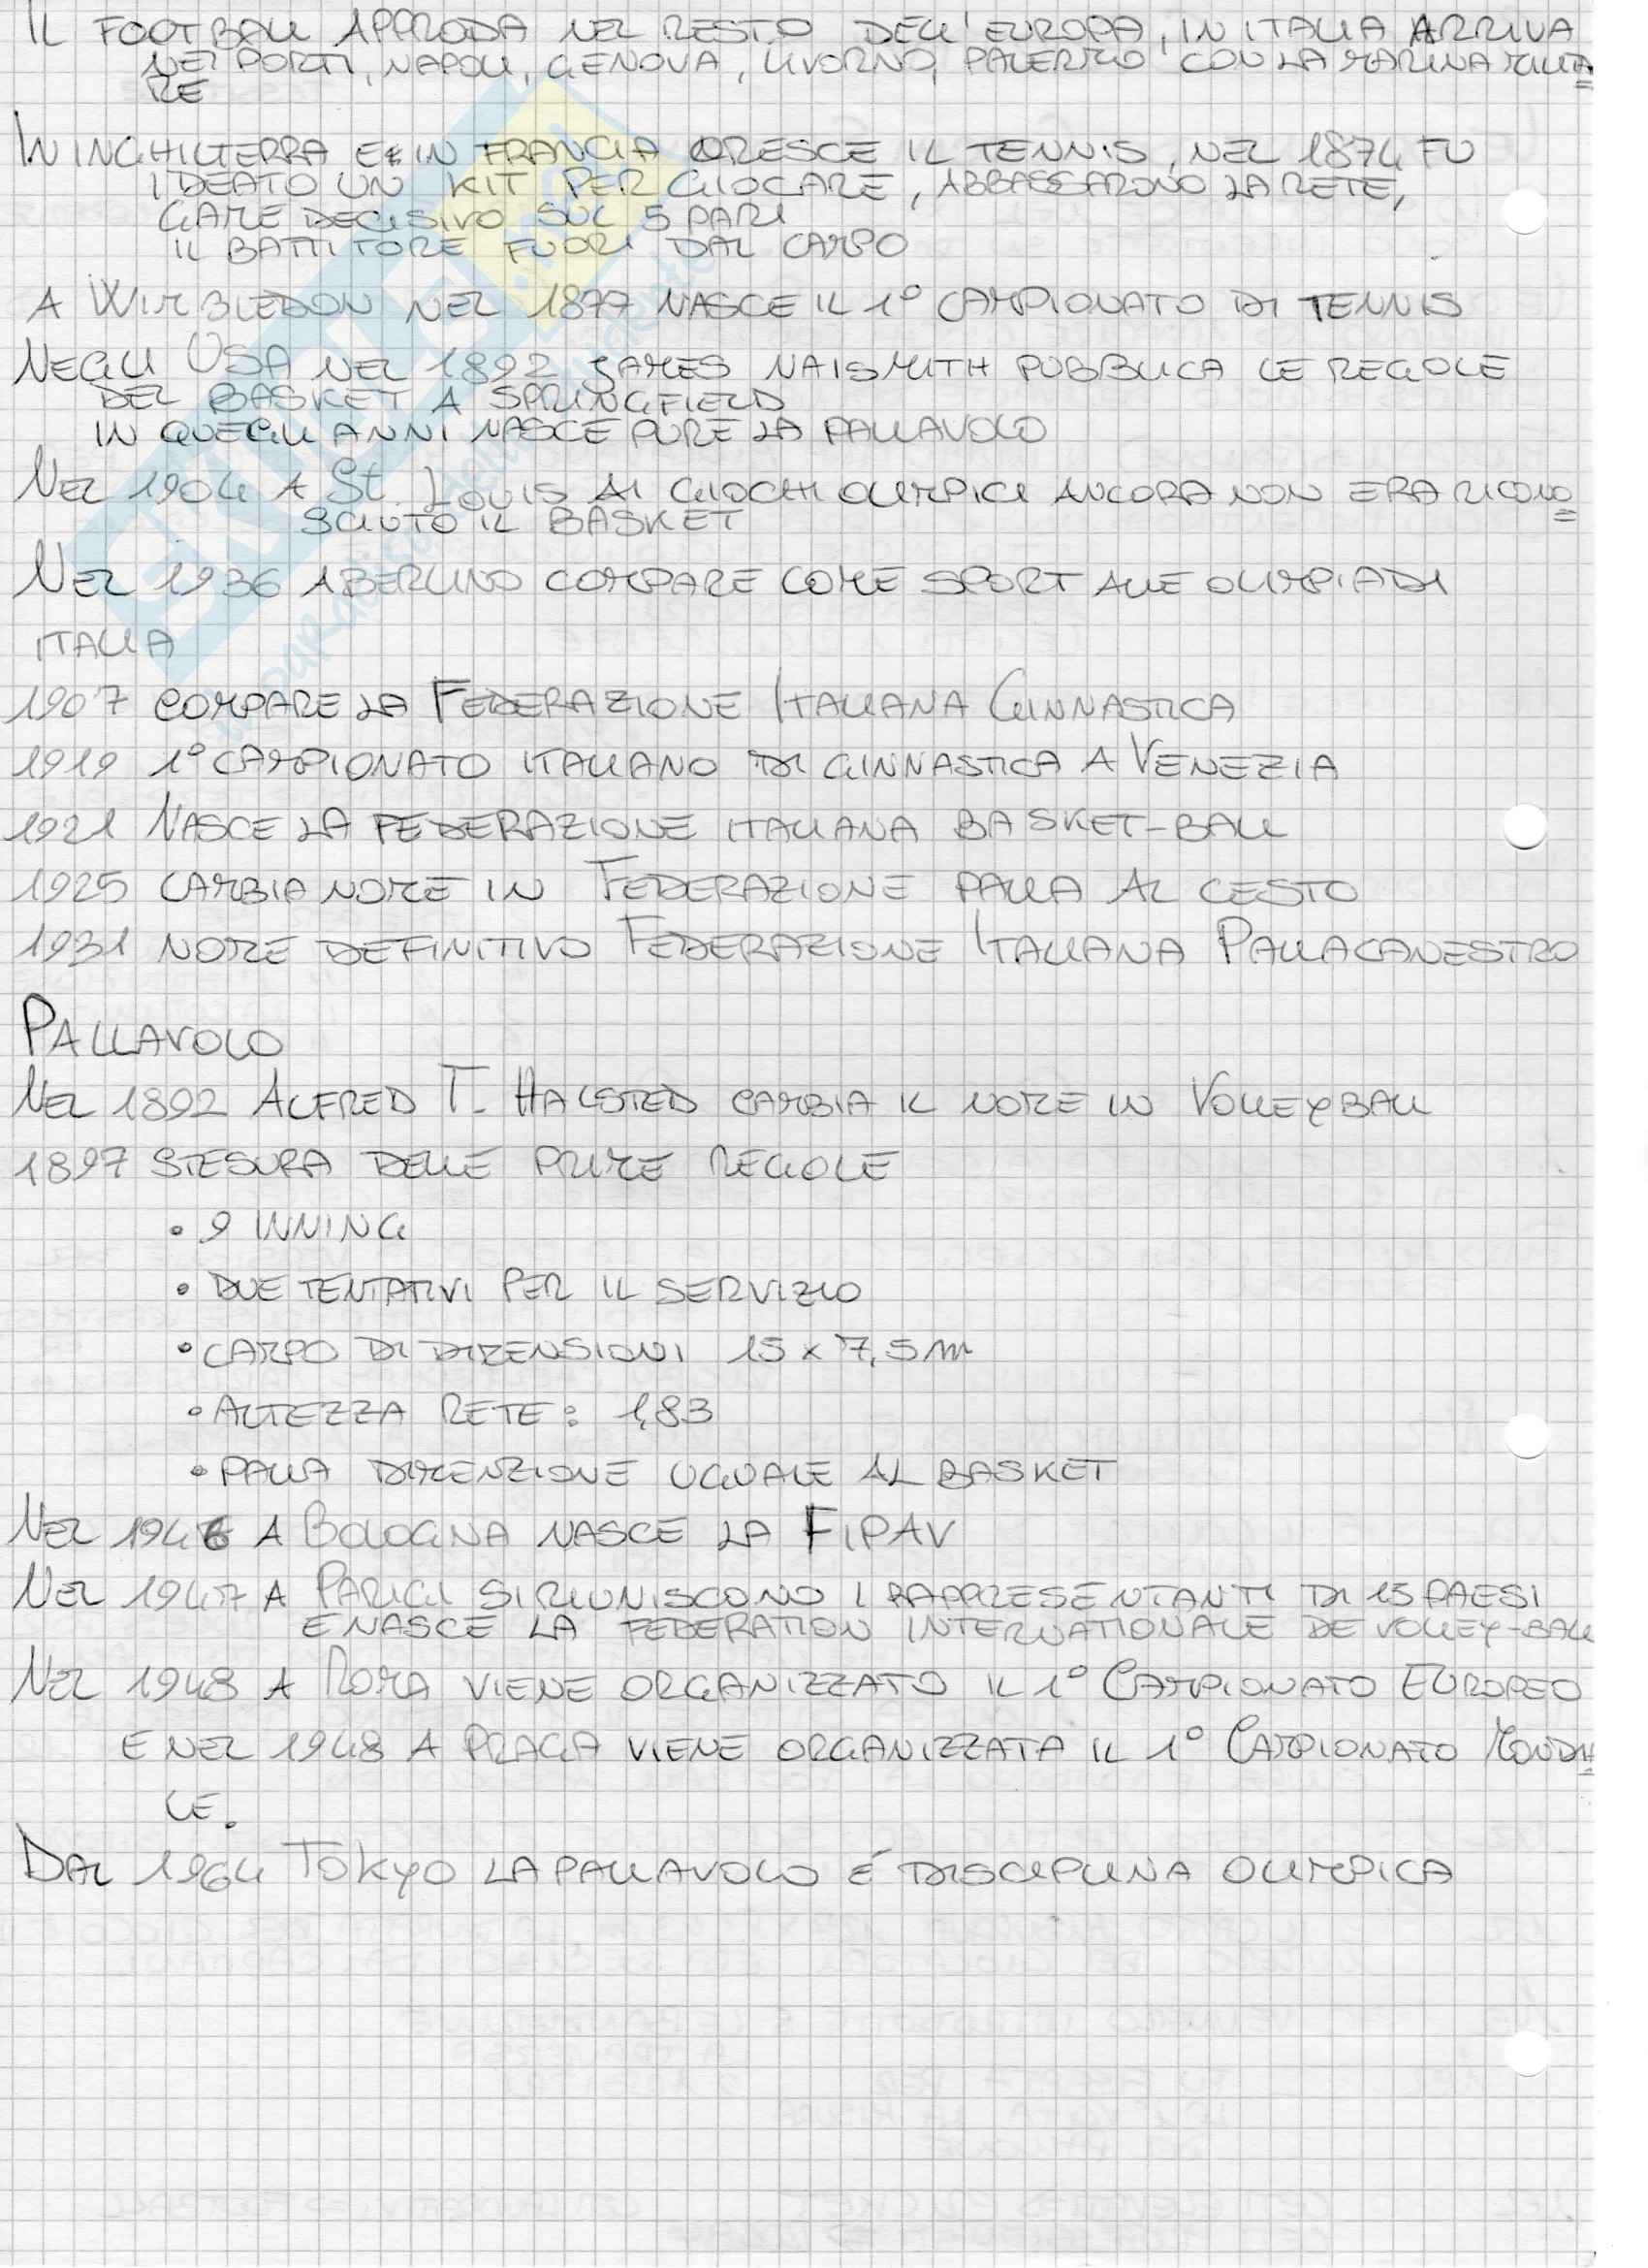 IL FOOTBALL APPRODA NEL RESTO DELL'EUROPA, IN ITALIA ARRIVA
NEI PORTI, NAPOLI, GENOVA, LIVORNO, PALERMO CON LA MARINA MILITA
RE
IN INGHILTERRA E IN FRANCIA CRESCE IL TENNIS, NEL 1874 FU
IDEATO UN KIT PER GIOCARE, ABBASSARONO LA RETE,
GAME DECISIVO SUL 5 PARI
IL BATTITORE FUORI DAL CAMPO
A WIMBLEDON NEL 1877 NASCE IL 1° CAMPIONATO DI TENNIS
NEGLI USA NEL 1892 JAMES NAISMITH PUBBLICA LE REGOLE
DEL BASKET A SPRINGFIELD
IN QUEGLI ANNI NASCE PURE LA PALLAVOLO
NEL 1904 A St. LOUIS AI GIOCHI OLIMPICI ANCORA NON ERA RICONO
SCIUTO IL BASKET
NEL 1936 A BERLINO COMPARE COME SPORT ALLE OLIMPIADI
ITALIA
1907 COMPARE LA FEDERAZIONE ITALIANA GINNASTICA
1919 1° CAMPIONATO ITALIANO DI GINNASTICA A VENEZIA
1921 NASCE LA FEDERAZIONE ITALIANA BASKET-BALL
1925 CAMBIA NOME IN FEDERAZIONE PALLA AL CESTO
1931 NOME DEFINITIVO FEDERAZIONE ITALIANA PALLACANESTRO
PALLAVOLO
NEL 1892 ALFRED T. HALSTED CAMBIA IL NOME IN VOLLEYBALL
1897 STESURA DELLE PRIME REGOLE
• 9 INNING
• DUE TENTATIVI PER IL SERVIZIO
• CAMPO DI DIMENSIONI 15 x 7,5 m
• ALTEZZA RETE: 1,83
• PALLA DIMENZIONE UGUALE AL BASKET
NEL 1946 A BOLOGNA NASCE LA FIPAV
NEL 1947 A PARIGI SI RIUNISCONO I RAPPRESENTANTI DI 15 PAESI
E NASCE LA FEDERATION INTERNATIONALE DE VOLLEY-BALL
NEL 1948 A ROMA VIENE ORGANIZZATO IL 1° CAMPIONATO EUROPEO
E NEL 1948 A PRAGA VIENE ORGANIZZATA IL 1° CAMPIONATO MONDIA
LE.
DAL 1964 TOKYO LA PALLAVOLO É DISCIPLINA OLIMPICA